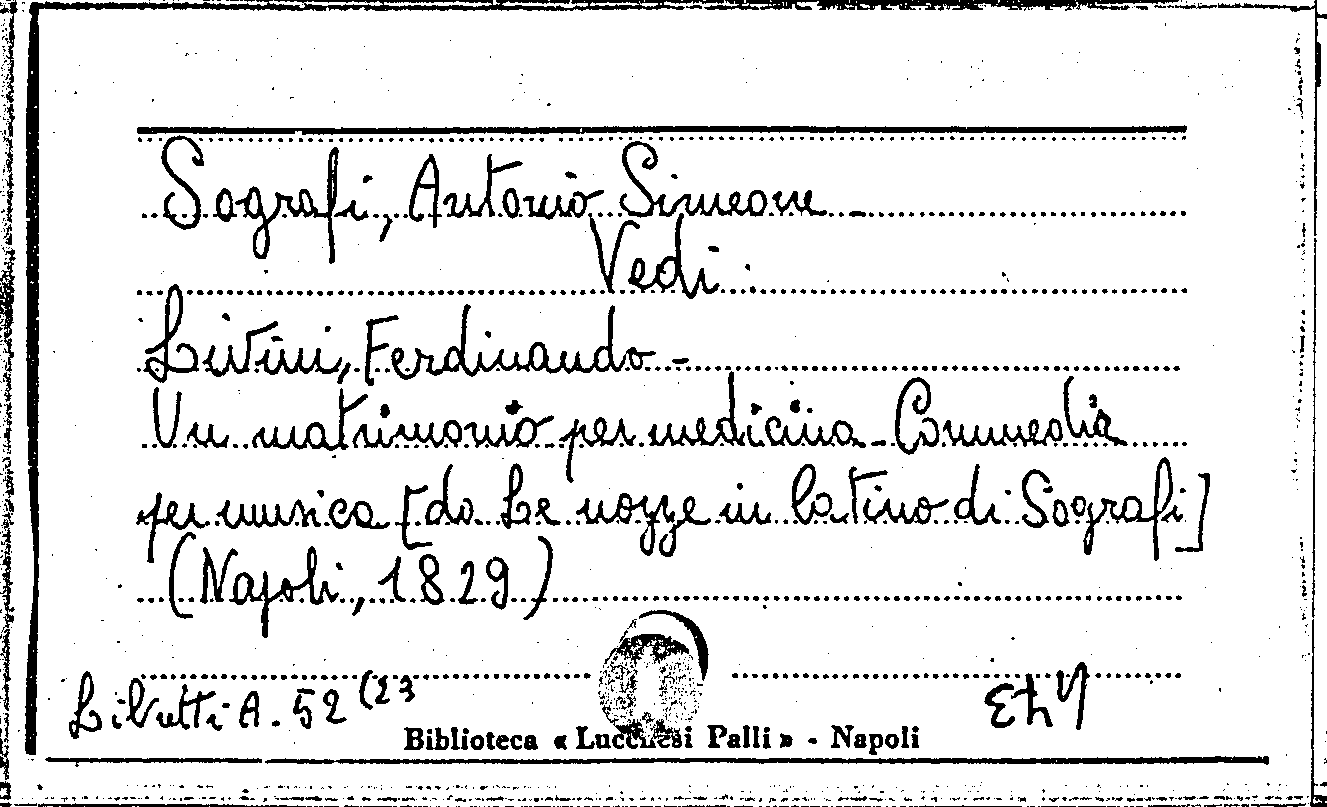 Sografi, Antonio Simeone
Vedi:
Livini, Ferdinando -
Un matrimonio per medicina - Commedia
per musica [da Le nozze in latino di Sografi]
(Napoli, 1829)
Libretti A. 52 (23
Biblioteca « Lucchesi Palli » - Napoli